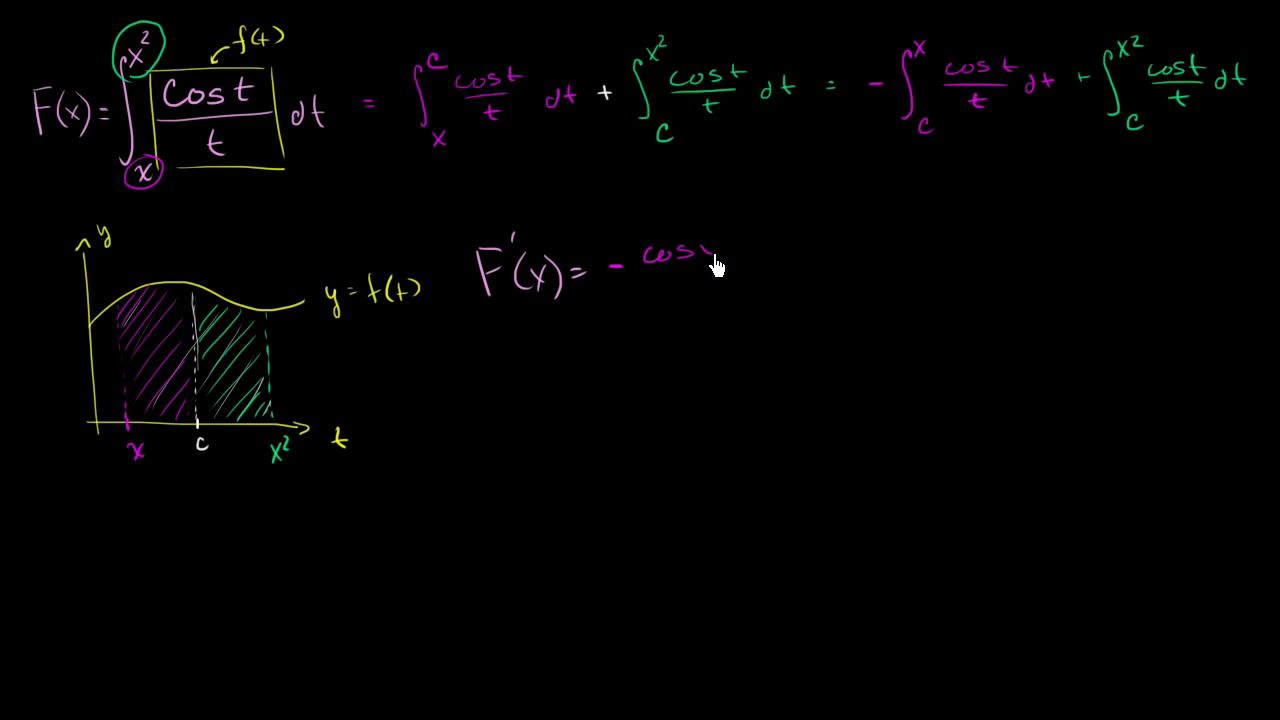 f(t)
F(x) = ∫_x^{x²} cos t / t dt = ∫_x^c cos t / t dt + ∫_c^{x²} cos t / t dt = - ∫_c^x cos t / t dt + ∫_c^{x²} cos t / t dt
y
F'(x) = - cos
y = f(t)
x c x² t